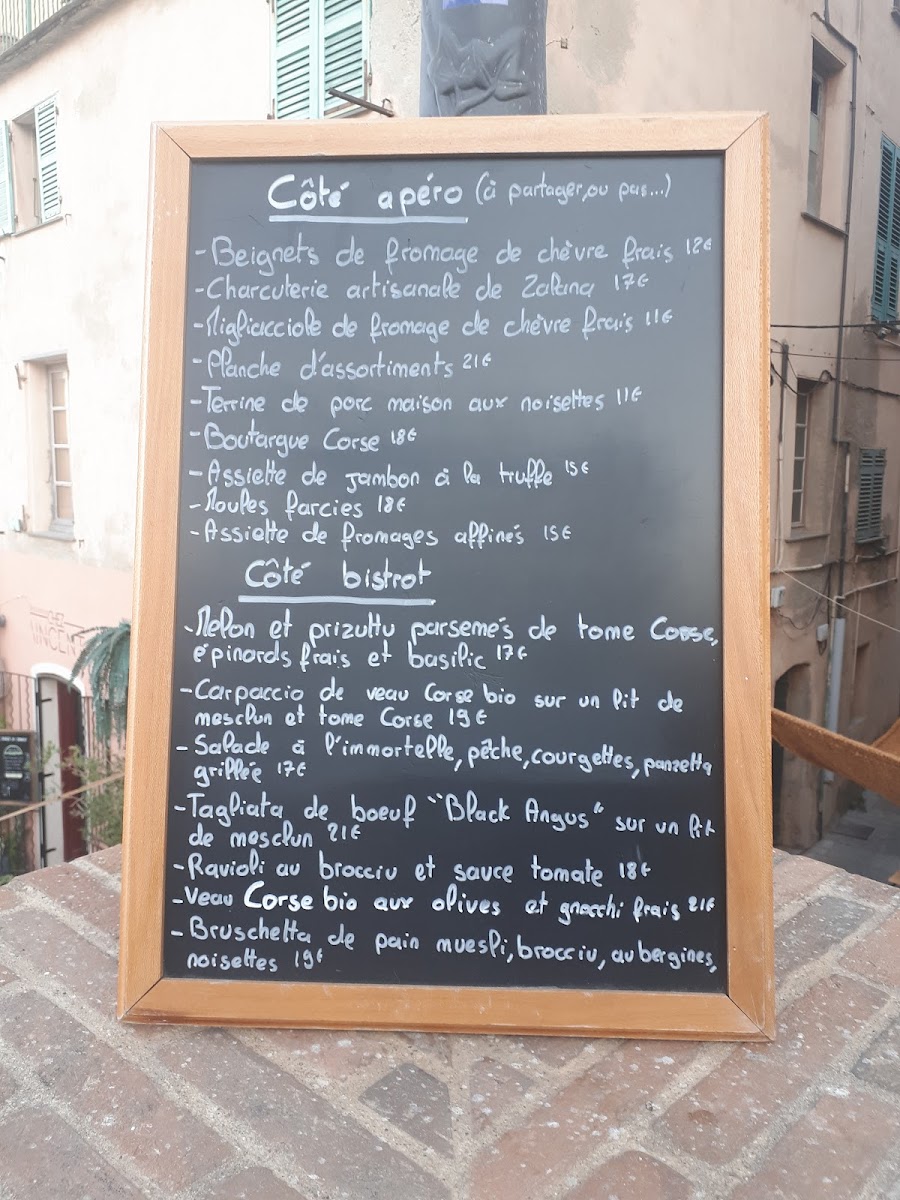 Côté apéro (à partager, ou pas...)
- Beignets de fromage de chèvre frais 12€
- Charcuterie artisanale de Zalana 17€
- Migliacciole de fromage de chèvre frais 11€
- Planche d'assortiments 21€
- Terrine de porc maison aux noisettes 11€
- Boutargue Corse 18€
- Assiette de jambon à la truffe 15€
- Moules farcies 18€
- Assiette de fromages affinés 15€
Côté bistrot
- Melon et prizuttu parsemés de tome Corse,
épinards frais et basilic 17€
- Carpaccio de veau Corse bio sur un lit de
mesclun et tome Corse 19€
- Salade à l'immortelle, pêche, courgettes, panzetta
grillée 17€
- Tagliata de boeuf "Black Angus" sur un lit
de mesclun 21€
- Ravioli au brocciu et sauce tomate 18€
- Veau Corse bio aux olives et gnocchi frais 21€
- Bruschetta de pain muesli, brocciu, aubergines,
noisettes 19€
CHEZ
VINCENT